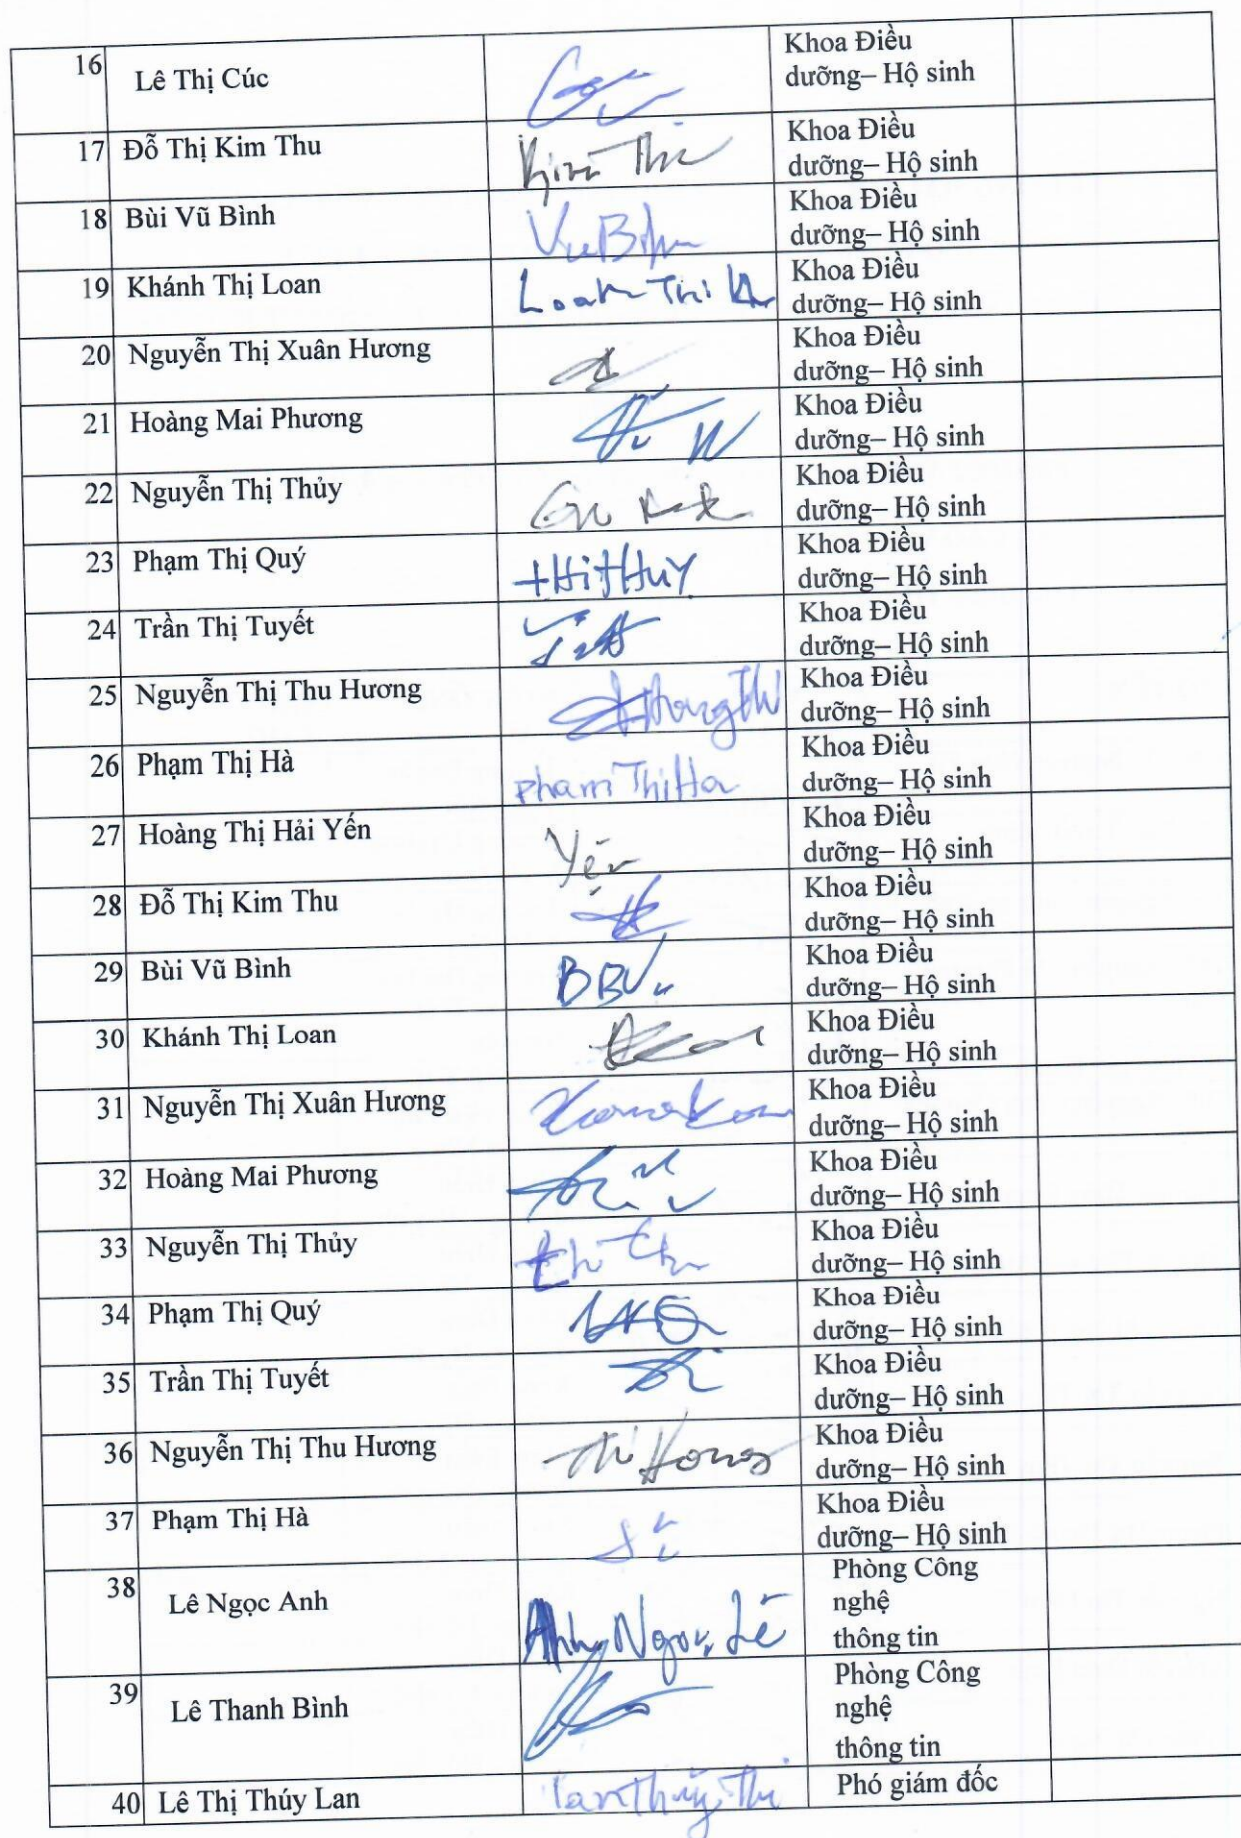 16 Lê Thị Cúc Khoa Điều
dưỡng– Hộ sinh
17 Đỗ Thị Kim Thu Kim Thu Khoa Điều
dưỡng– Hộ sinh
18 Bùi Vũ Bình Vu Binh Khoa Điều
dưỡng– Hộ sinh
19 Khánh Thị Loan Loan Thi Khoa Điều
dưỡng– Hộ sinh
20 Nguyễn Thị Xuân Hương Khoa Điều
dưỡng– Hộ sinh
21 Hoàng Mai Phương Khoa Điều
dưỡng– Hộ sinh
22 Nguyễn Thị Thủy Khoa Điều
dưỡng– Hộ sinh
23 Phạm Thị Quý tHitHuy Khoa Điều
dưỡng– Hộ sinh
24 Trần Thị Tuyết Khoa Điều
dưỡng– Hộ sinh
25 Nguyễn Thị Thu Hương Khoa Điều
dưỡng– Hộ sinh
26 Phạm Thị Hà Pham Thi Ha Khoa Điều
dưỡng– Hộ sinh
27 Hoàng Thị Hải Yến Yến Khoa Điều
dưỡng– Hộ sinh
28 Đỗ Thị Kim Thu Khoa Điều
dưỡng– Hộ sinh
29 Bùi Vũ Bình BBVu Khoa Điều
dưỡng– Hộ sinh
30 Khánh Thị Loan Khoa Điều
dưỡng– Hộ sinh
31 Nguyễn Thị Xuân Hương Khoa Điều
dưỡng– Hộ sinh
32 Hoàng Mai Phương Khoa Điều
dưỡng– Hộ sinh
33 Nguyễn Thị Thủy Khoa Điều
dưỡng– Hộ sinh
34 Phạm Thị Quý Khoa Điều
dưỡng– Hộ sinh
35 Trần Thị Tuyết Khoa Điều
dưỡng– Hộ sinh
36 Nguyễn Thị Thu Hương Khoa Điều
dưỡng– Hộ sinh
37 Phạm Thị Hà Khoa Điều
dưỡng– Hộ sinh
38 Lê Ngọc Anh Anh Ngọc Lê Phòng Công
nghệ
thông tin
39 Lê Thanh Bình Phòng Công
nghệ
thông tin
40 Lê Thị Thúy Lan Lan Thúy Thi Phó giám đốc